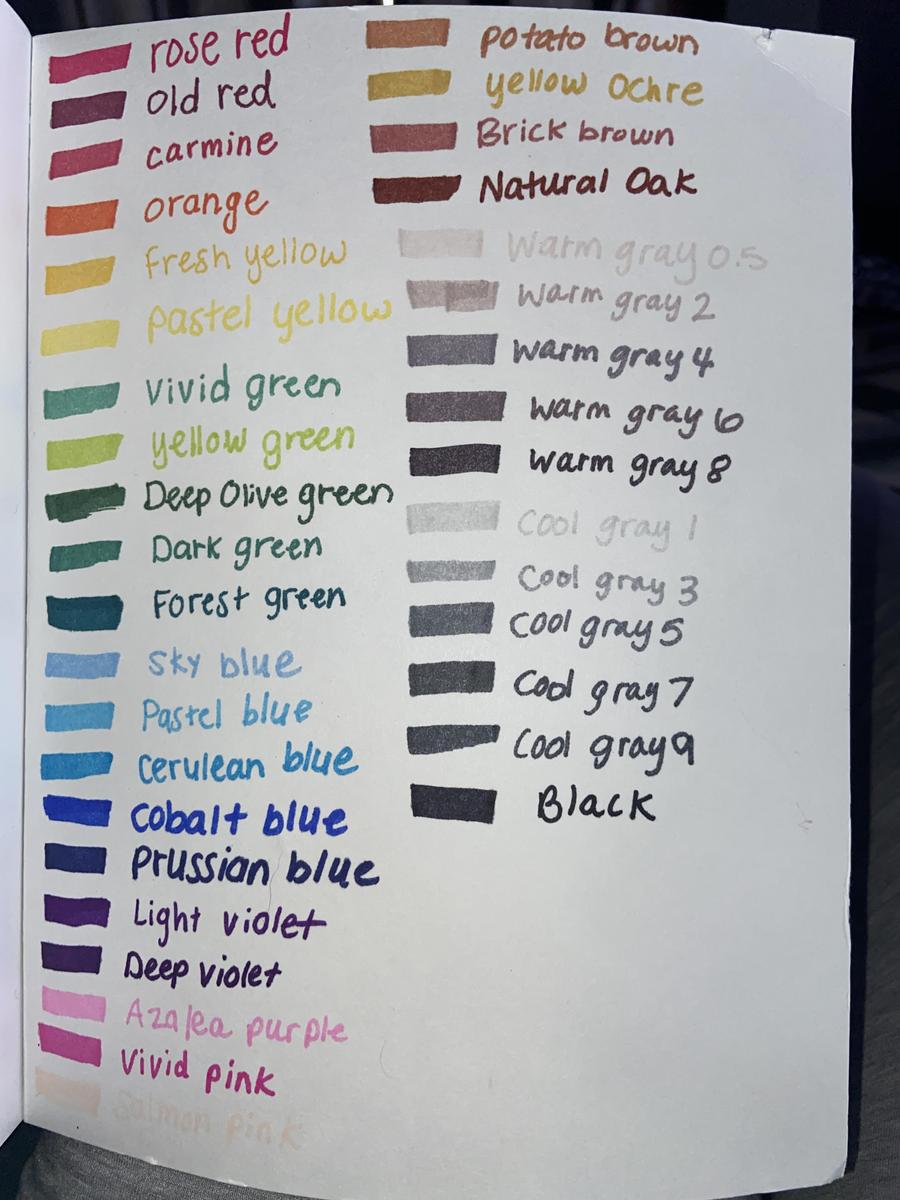 rose red
old red
carmine
orange
fresh yellow
pastel yellow
vivid green
yellow green
Deep Olive green
Dark green
Forest green
sky blue
Pastel blue
cerulean blue
cobalt blue
prussian blue
Light violet
Deep violet
Azalea purple
vivid pink
salmon pink
potato brown
yellow Ochre
Brick brown
Natural Oak
Warm gray 0.5
Warm gray 2
Warm gray 4
Warm gray 6
Warm gray 8
Cool gray 1
Cool gray 3
Cool gray 5
Cool gray 7
Cool gray 9
Black